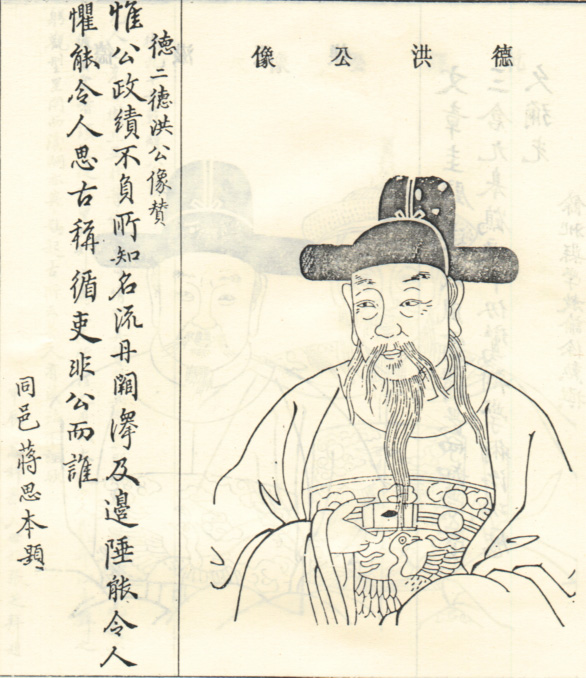 德洪公像
德二德洪公像賛
惟公政績不負所知名流丹闕澤及邊陲能令人
懼能令人思古稱循吏非公而誰
同邑蔣思本題